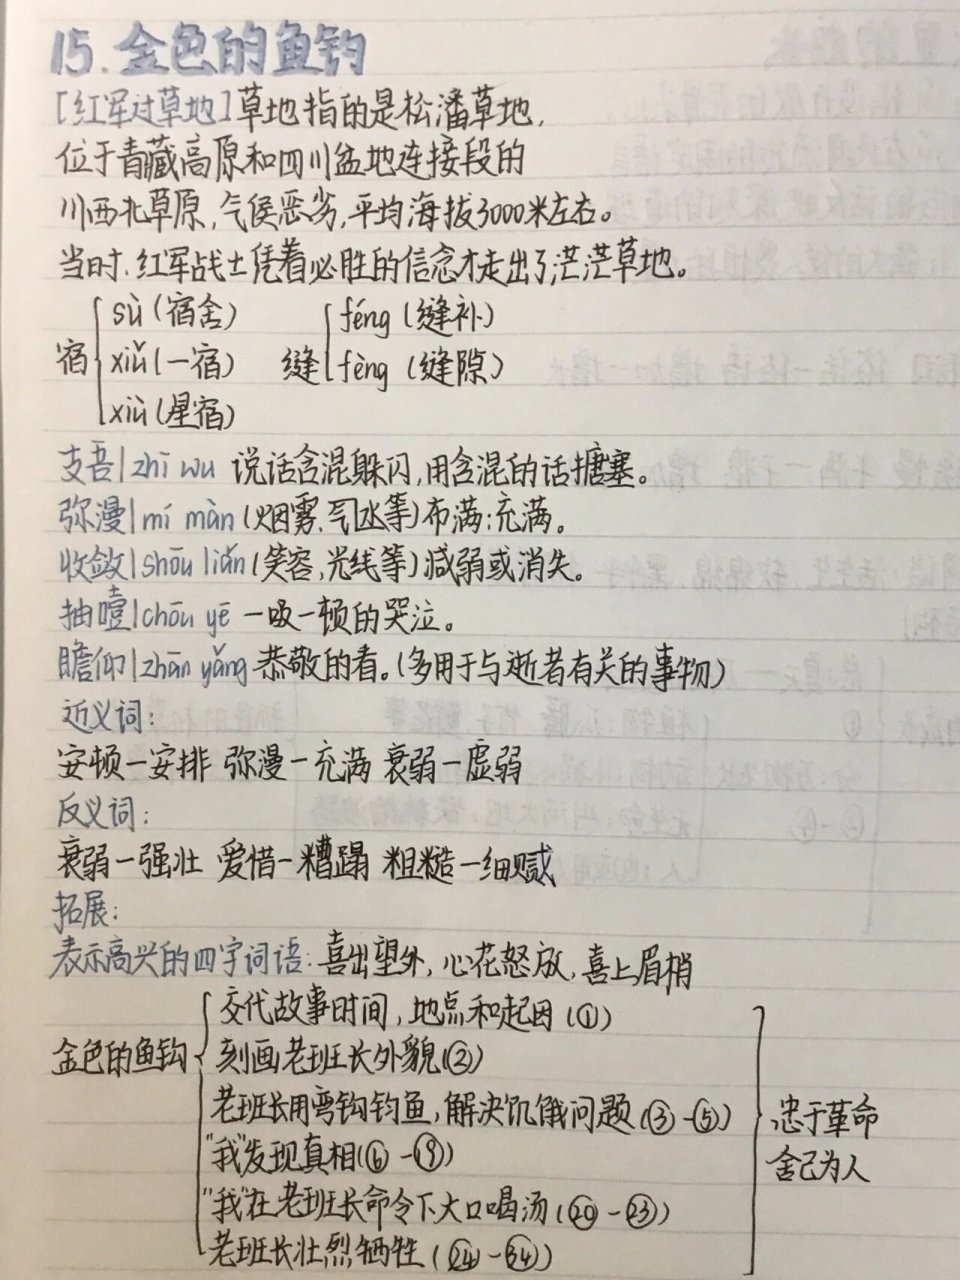 15.金色的鱼钩
[红军过草地]草地指的是松潘草地,
位于青藏高原和四川盆地连接段的
川西北草原,气候恶劣,平均海拔3000米左右。
当时,红军战士凭着必胜的信念才走出了茫茫草地。
宿 sù(宿舍) xiǔ(一宿) xiù(星宿)
缝 féng(缝补) fèng(缝隙)
支吾|zhī wu 说话含混躲闪,用含混的话搪塞。
弥漫|mí màn(烟雾、气水等)布满;充满。
收敛|shōu liǎn(笑容,光线等)减弱或消失。
抽噎|chōu yē 一吸一顿的哭泣。
瞻仰|zhān yǎng 恭敬的看。(多用于与逝者有关的事物)
近义词:
安顿-安排 弥漫-充满 衰弱-虚弱
反义词:
衰弱-强壮 爱惜-糟蹋 粗糙-细腻
拓展:
表示高兴的四字词语:喜出望外,心花怒放,喜上眉梢
金色的鱼钩
交代故事时间,地点和起因(①)
刻画老班长外貌(②)
老班长用弯钩钓鱼,解决饥饿问题(③-⑤)
"我"发现真相(⑥-⑲)
"我"在老班长命令下大口喝汤(⑳-㉓)
老班长壮烈牺牲(㉔-㉞)
忠于革命
舍己为人